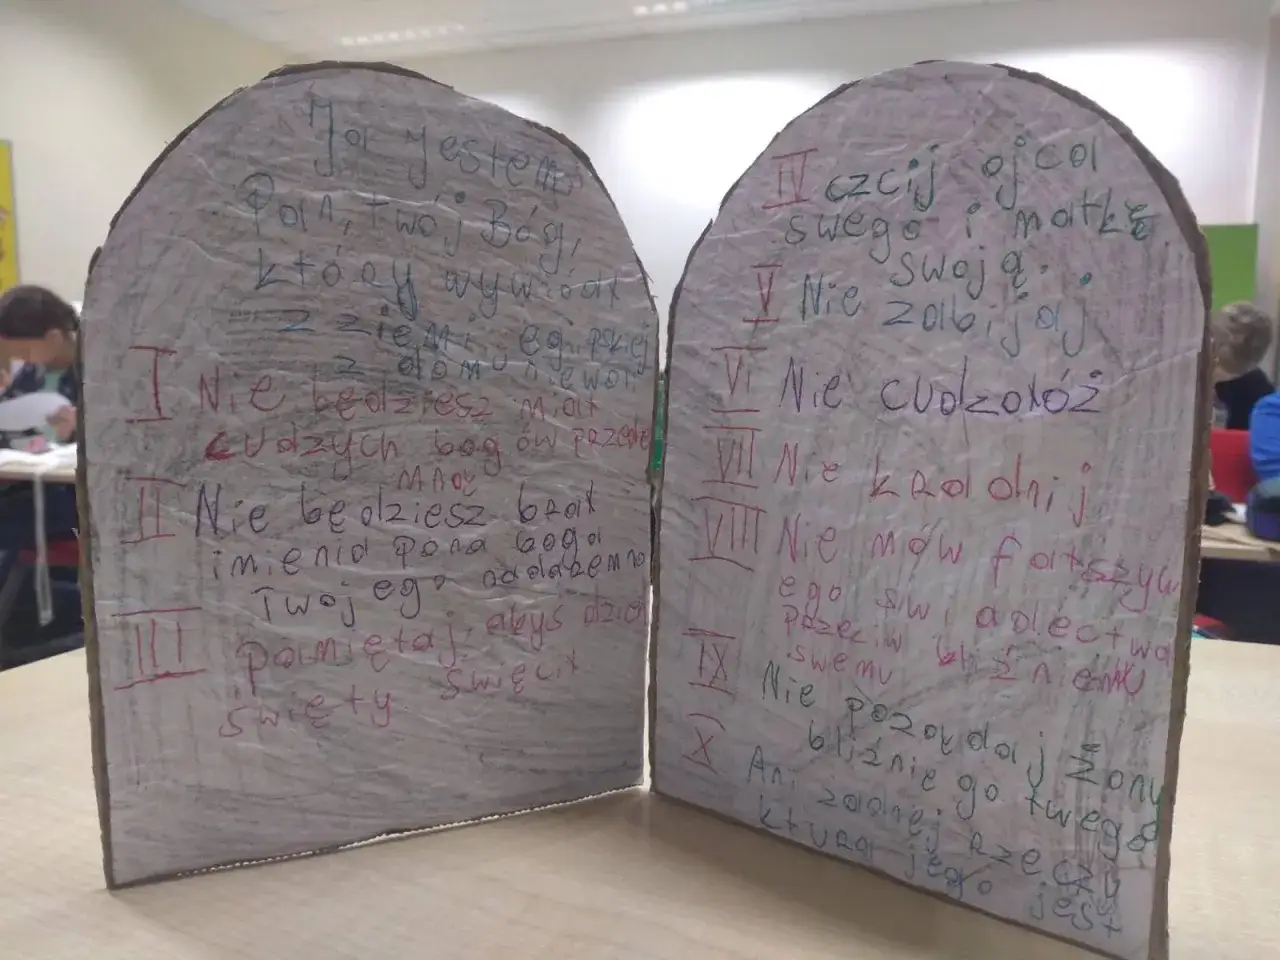 Ja jestem
Pan, twój Bóg,
który wywiódł
z ziemi egipskiej
z domu niewoli
I Nie będziesz miał
cudzych bogów przede
mną
II Nie będziesz brał
imienia pana boga
Twojego nadaremno
III pamiętaj, abyś dzień
święty święcił
IV czcij ojca
swego i matkę
swoją.
V Nie zabijaj
VI Nie cudzołóż
VII Nie kradnij
VIII Nie mów fałszyw
ego świadectwa
przeciw bliźniemu
swemu
IX Nie pożądaj żony
bliźniego twego
X Ani żadnej rzeczy
ktura jego jest